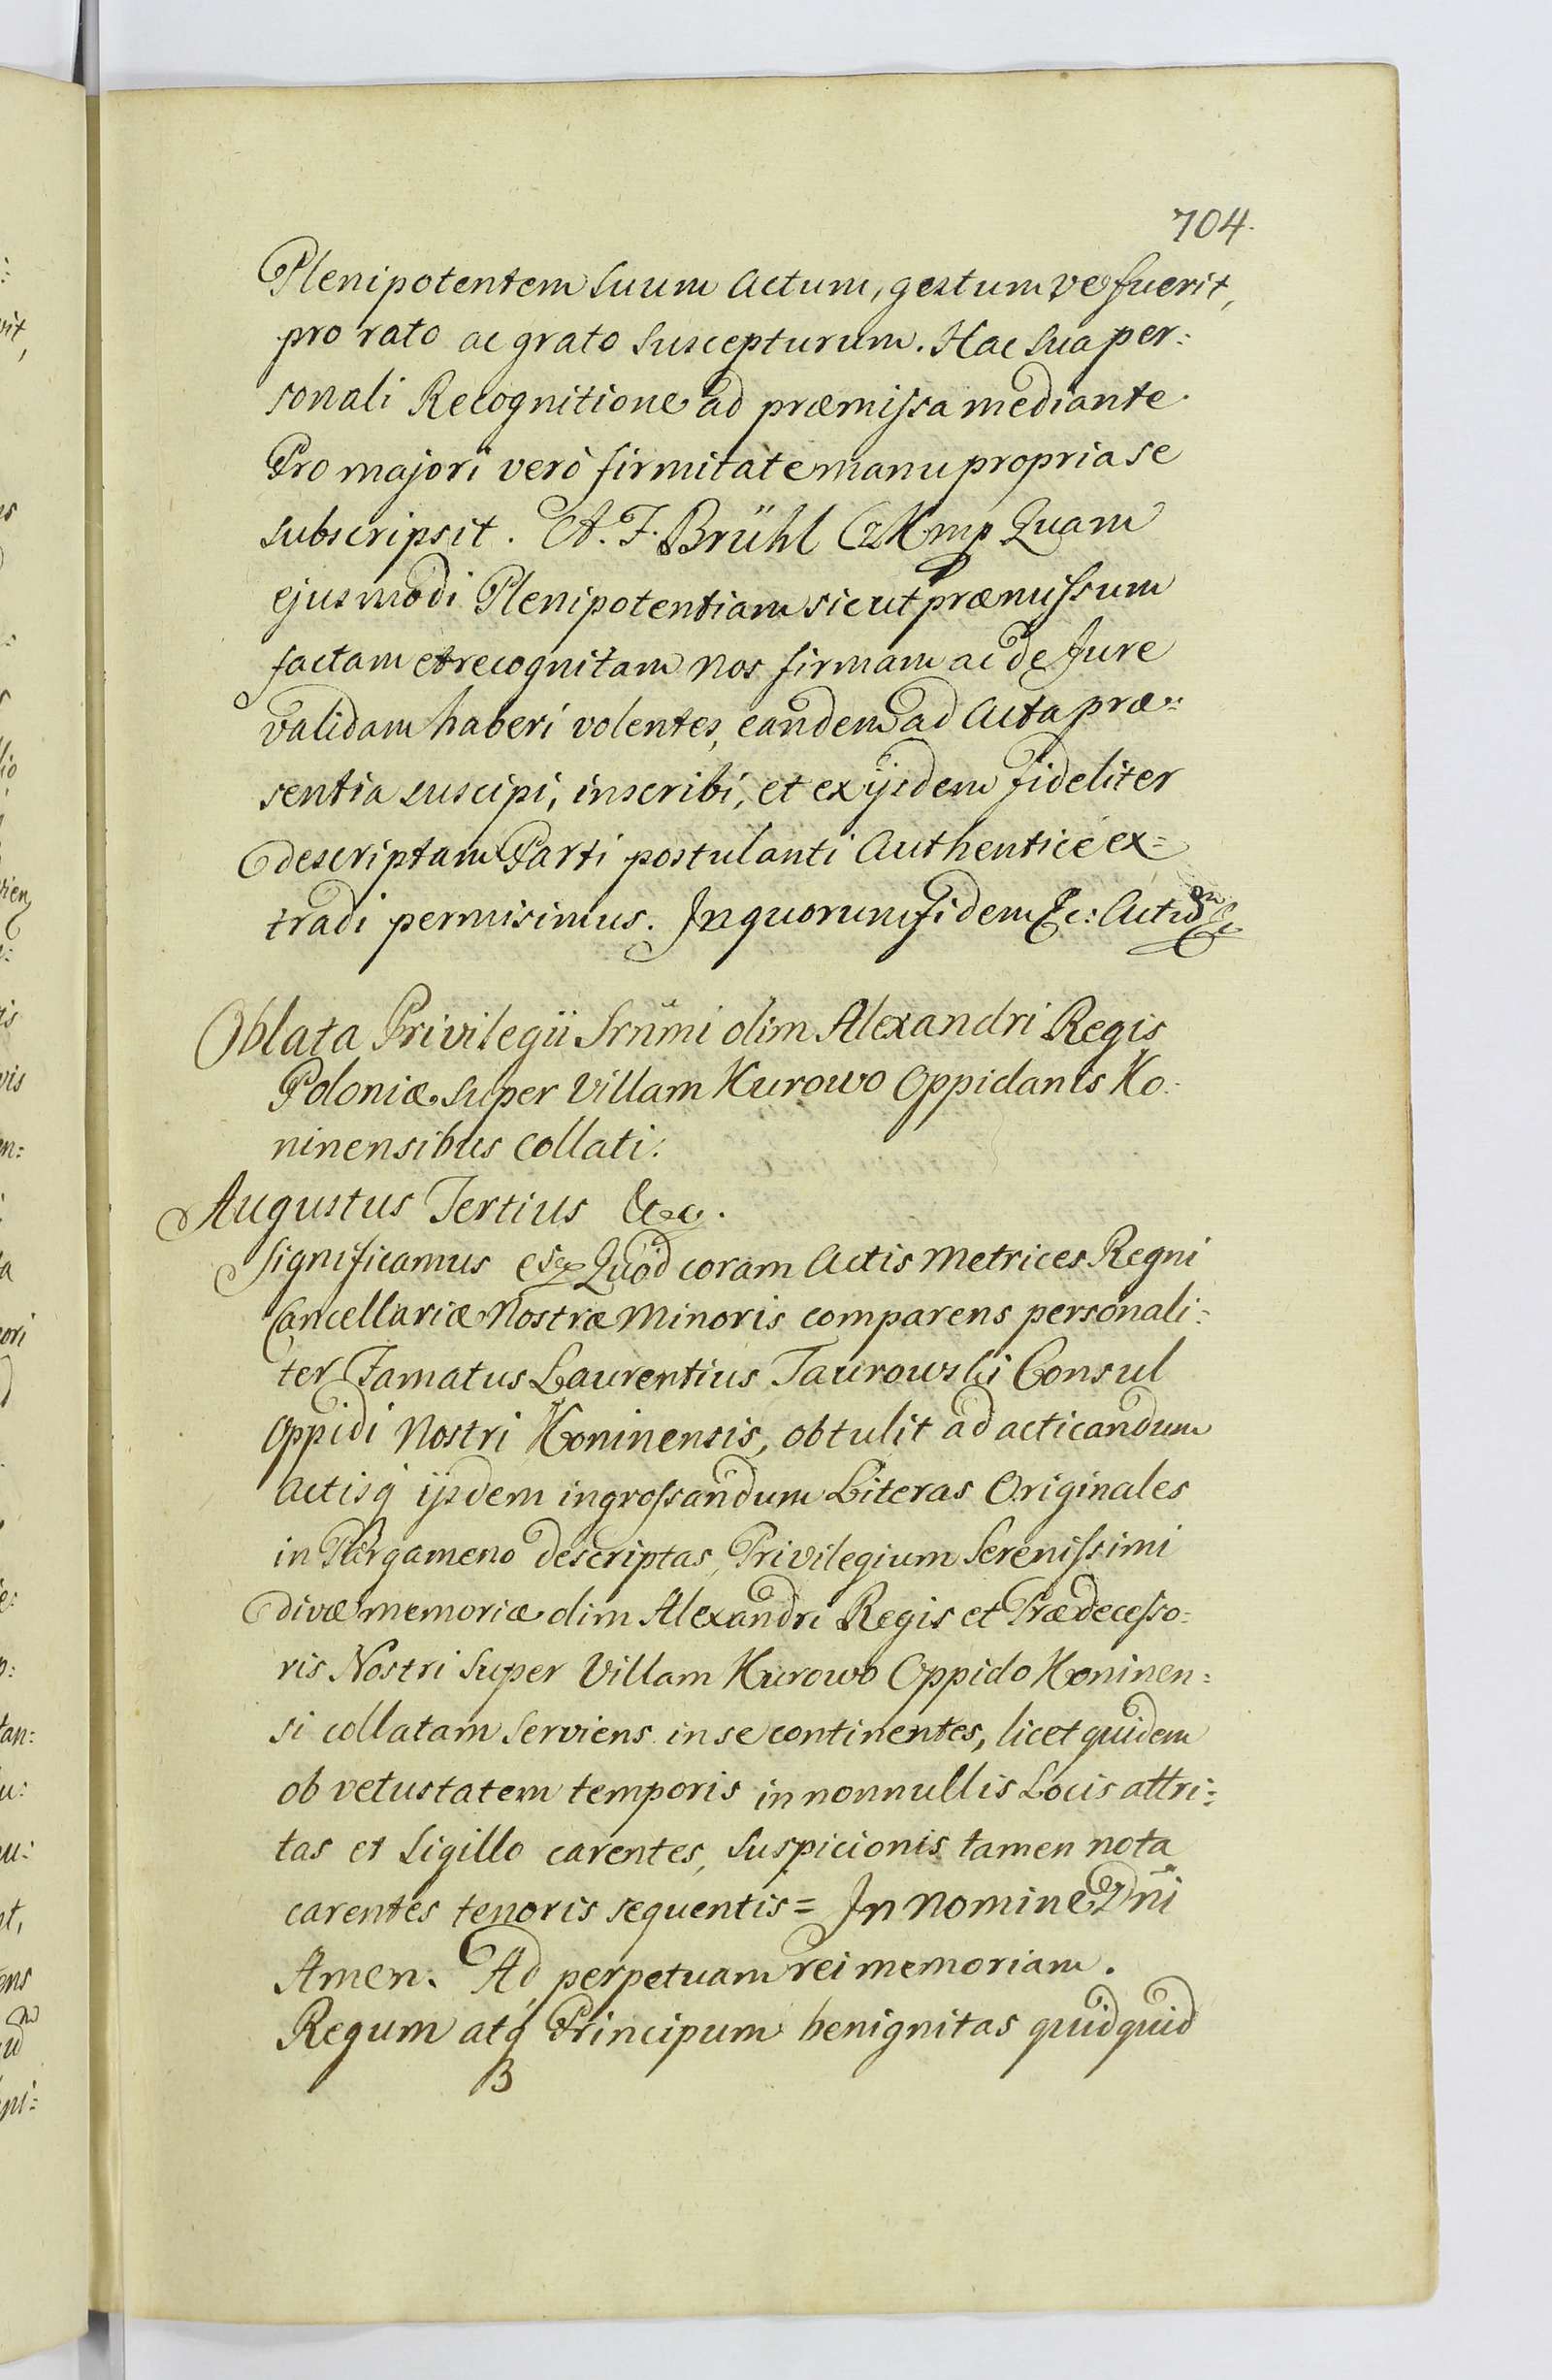 704.
Plenipotentem suum actum, gestum ve fuerit,
pro rato ac grato suscepturum. Hac sua per:
sonali Recognitione ad præmissa mediante.
Pro majori verò firmitate manu propria se
subscripsit. A. F. Brühl CzK mp Quam
ejusmodi Plenipotentiam sicut præmissum
factam et recognitam nos firmam ac de Jure
validam haberi volentes, eandem ad Acta præ:
sentia suscipi, inscribi, et ex ijsdem fideliter
descriptam Parti postulanti Authentice ex=
tradi permisimus. In quorum fidem &c: Act
Oblata Privilegii Srnmi olim Alexandri Regis
Poloniæ super Villam Kurowo Oppidanis Ko:
ninensibus collati:
Augustus Tertius &c.
Significamus Quod coram Actis Metrices Regni
Cancellariæ Nostræ Minoris comparens personali:
ter Famatus Laurentius Taurowski Consul
Oppidi Nostri Koninensis, obtulit ad acticandum
Actisq ijsdem ingrossandum Literas Originales
in Pergameno descriptas, Privilegium Serenissimi
divæ memoriæ olim Alexandri Regis et Prædecesso:
ris Nostri super Villam Kurowo Oppido Koninen:
si collatam serviens in se continentes, licet quidem
ob vetustatem temporis in nonnullis Locis attri:
tas et Sigillo carentes, suspicionis tamen nota
carentes tenoris sequentis = In Nomine Dni
Amen. Ad perpetuam rei memoriam.
Regum atq Principum benignitas quidquid